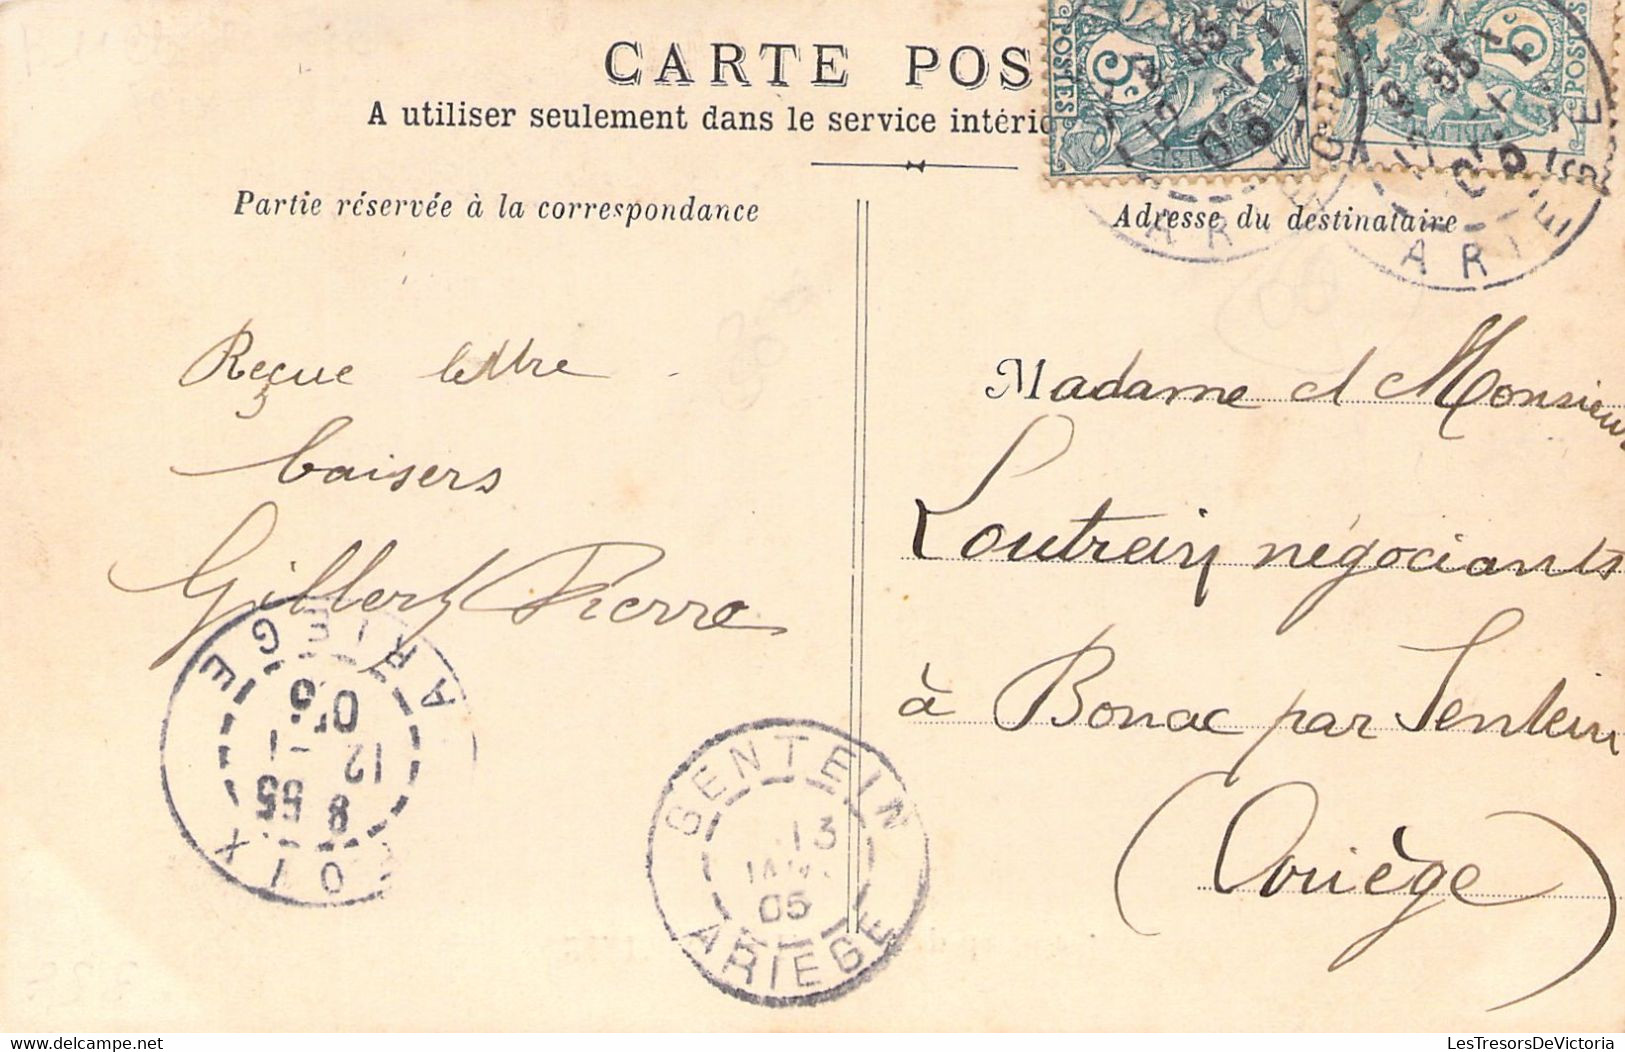 CARTE POS
A utiliser seulement dans le service intérie
Partie réservée à la correspondance
Adresse du destinataire
POSTES 5c
5c POSTES
ARIEGE
ARIEGE
Reçue lettre
baisers
Gilbert Pierre
Madame et Monsieur
négociants
à Bonac par Sentein
(Ariège)
ARIEGE
8 55
12 -1
05
SENTEIN
13
JANV.
05
ARIEGE
LesTresorsDeVictoria